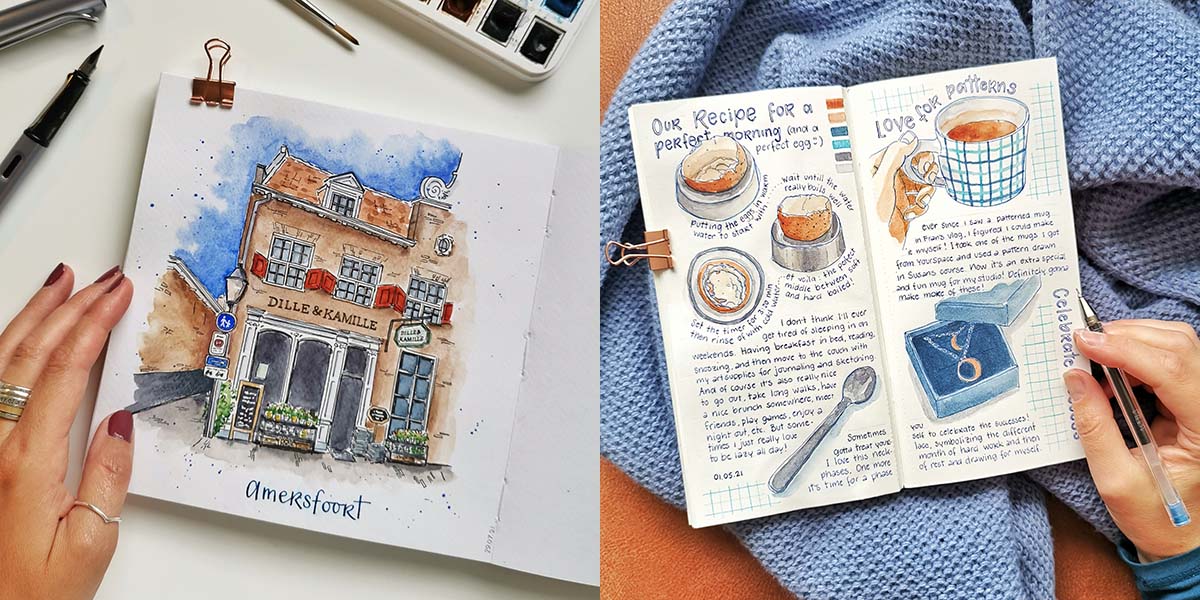 DILLE & KAMILLE
DILLE &
KAMILLE
amersfoort
29.07.21
Our Recipe for a
perfect morning (and a
perfect egg =)
Putting the eggs in warm
water to start with....
...wait untill the water
really boils well
Set the timer for 5:20 min
then rinse of with cold water...
..et voila, the perfect
middle between soft
and hard boiled!
I don't think I'll ever
get tired of sleeping in on
weekends. Having breakfast in bed, reading,
snoozing, and then move to the couch with
my art supplies for journaling and sketching.
And of course it's also really nice
to go out, take long walks, have
a nice brunch somewhere, meet
friends, play games, enjoy a
night out, etc. But some-
times I just really love
to be lazy all day!
01.05.21
Sometimes
gotta treat your
I love this neck-
phases. One more
it's time for a phase
Love for patterns
Ever since I saw a patterned mug
in Frans vlog, I figured I could make
it myself! I took one of the mugs I got
from YourSpace and used a pattern drawn
in Susans course. Now it's an extra special
and fun mug for my studio! Definitely gonna
make more of these!
Celebrate
you
self to celebrate the successes!
lace, symbolizing the different
month of hard work and then
of rest and drawing for myself.